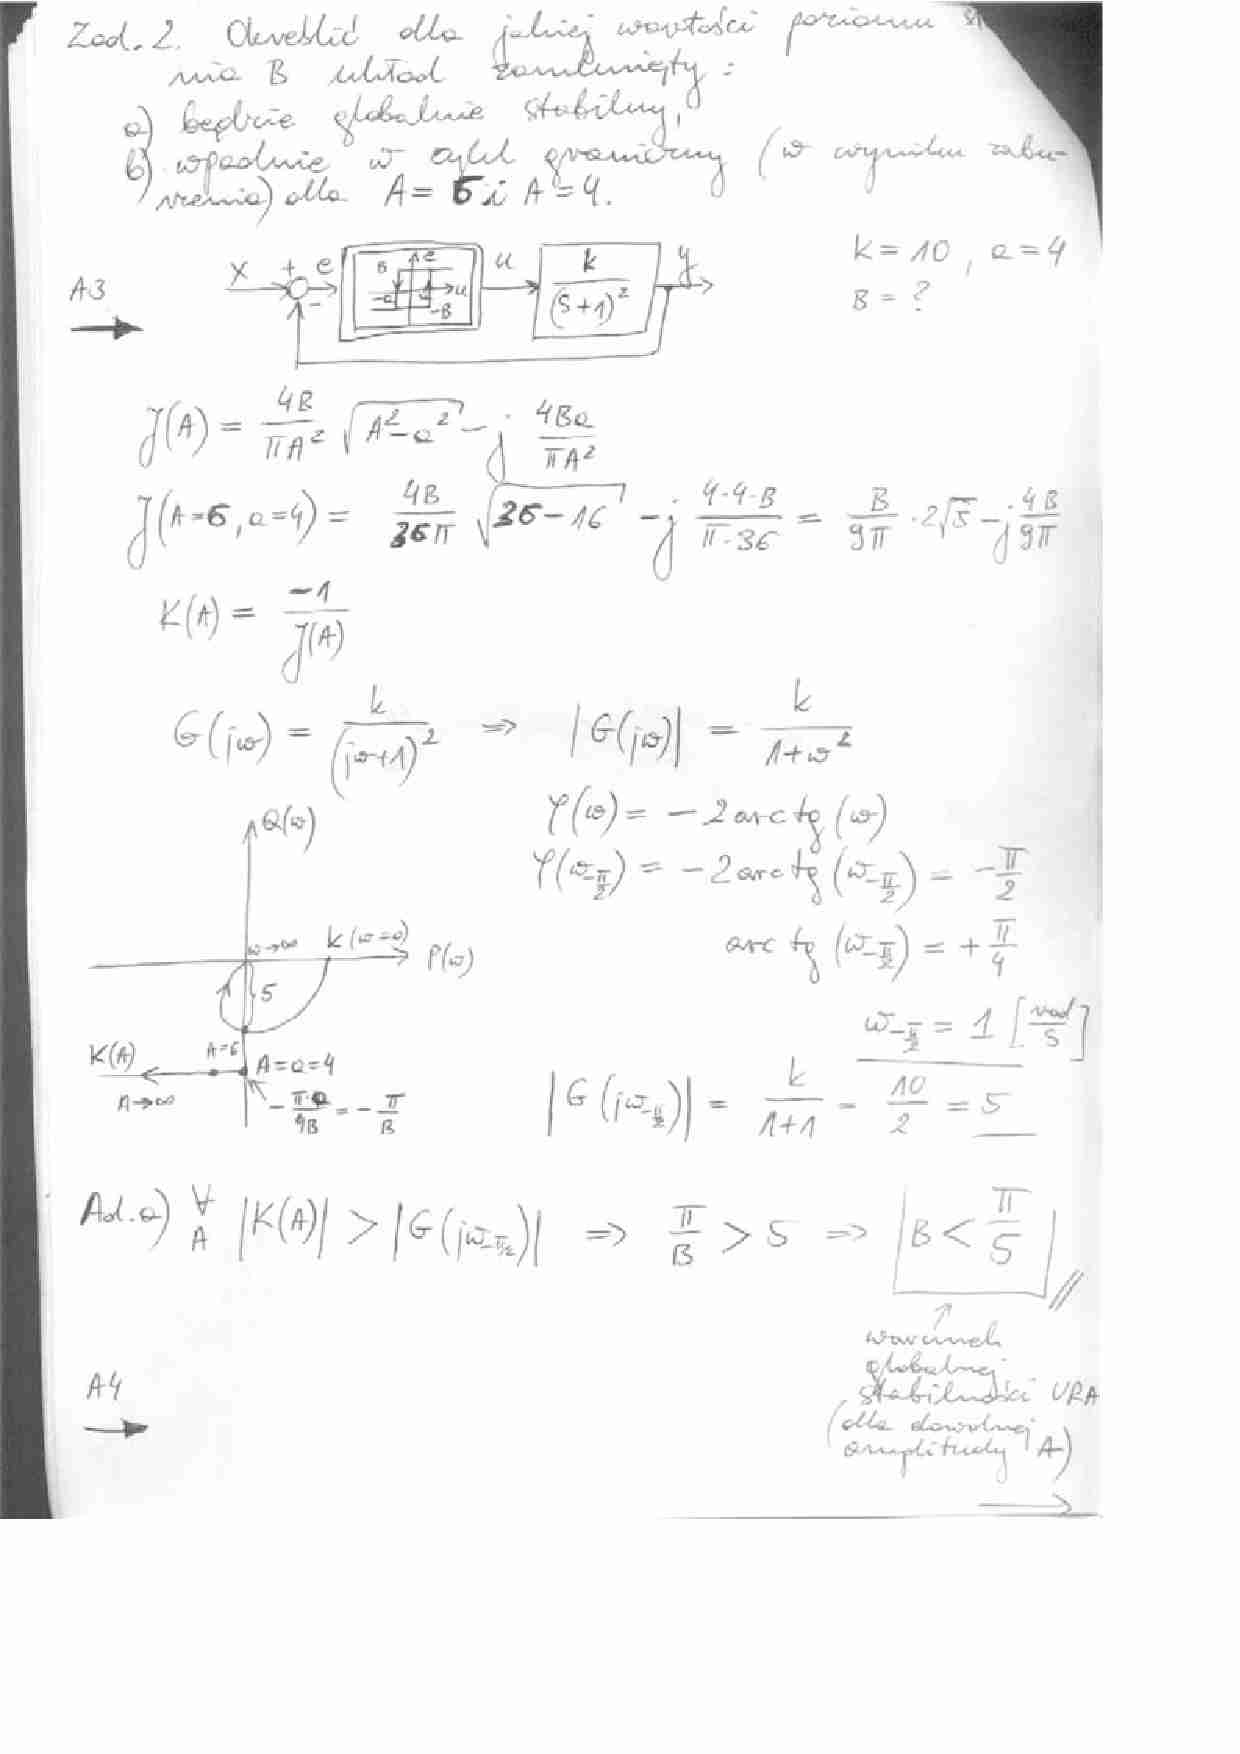 Zad. 2. Określić dla jakiej wartości poziomu
nia B układ zamknięty:
a) będzie globalnie stabilny,
b) wpadnie w cykl graniczny (w wyniku zabu-
rzenia) dla A = 6 i A = 4.
k = 10, a = 4
B = ?
A3
x + e - B e -a a u -B u k/(s+1)² y
J(A) = 4B/(πA²) √(A²-a²) - j 4Ba/(πA²)
J(A=6, a=4) = 4B/(36π) √(36-16) - j (4·4·B)/(π·36) = B/(9π) · 2√5 - j 4B/(9π)
K(A) = -1/J(A)
G(jω) = k/(jω+1)² ⇒ |G(jω)| = k/(1+ω²)
φ(ω) = -2 arc tg (ω)
φ(ω_{-π/2}) = -2 arc tg (ω_{-π/2}) = -π/2
arc tg (ω_{-π/2}) = + π/4
ω_{-π/2} = 1 [rad/s]
|G(jω_{-π/2})| = k/(1+1) = 10/2 = 5
Q(ω)
ω→∞ k (ω=0) P(ω)
5
K(A) A=6 A=a=4
A→∞ -π·a/(4B) = -π/B
Ad. a) ∀A |K(A)| > |G(jω_{-π/2})| ⇒ π/B > 5 ⇒ B < π/5
warunek
globalnej
stabilności URA
(dla dowolnej
amplitudy A)
A4